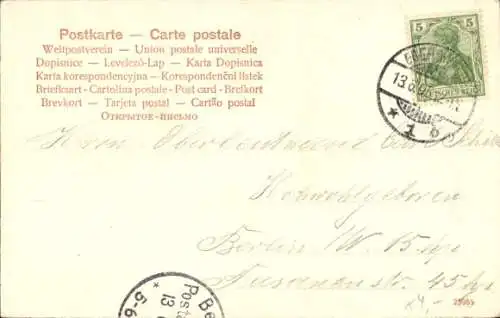 Postkarte — Carte postale
Weltpostverein — Union postale universelle
Dopisnice — Levelező-Lap — Karta Dopisnica
Karta korespondencyjna — Korespondenční lístek
Briefkaart - Cartolina postale - Post card - Brefkort
Brevkort — Tarjeta postal — Cartão postal
Открытое-письмо
5 5
13.6
* 1 b
Herrn Oberleutnant
Hochwohlgeboren
Berlin W. 15
45
* 5-6